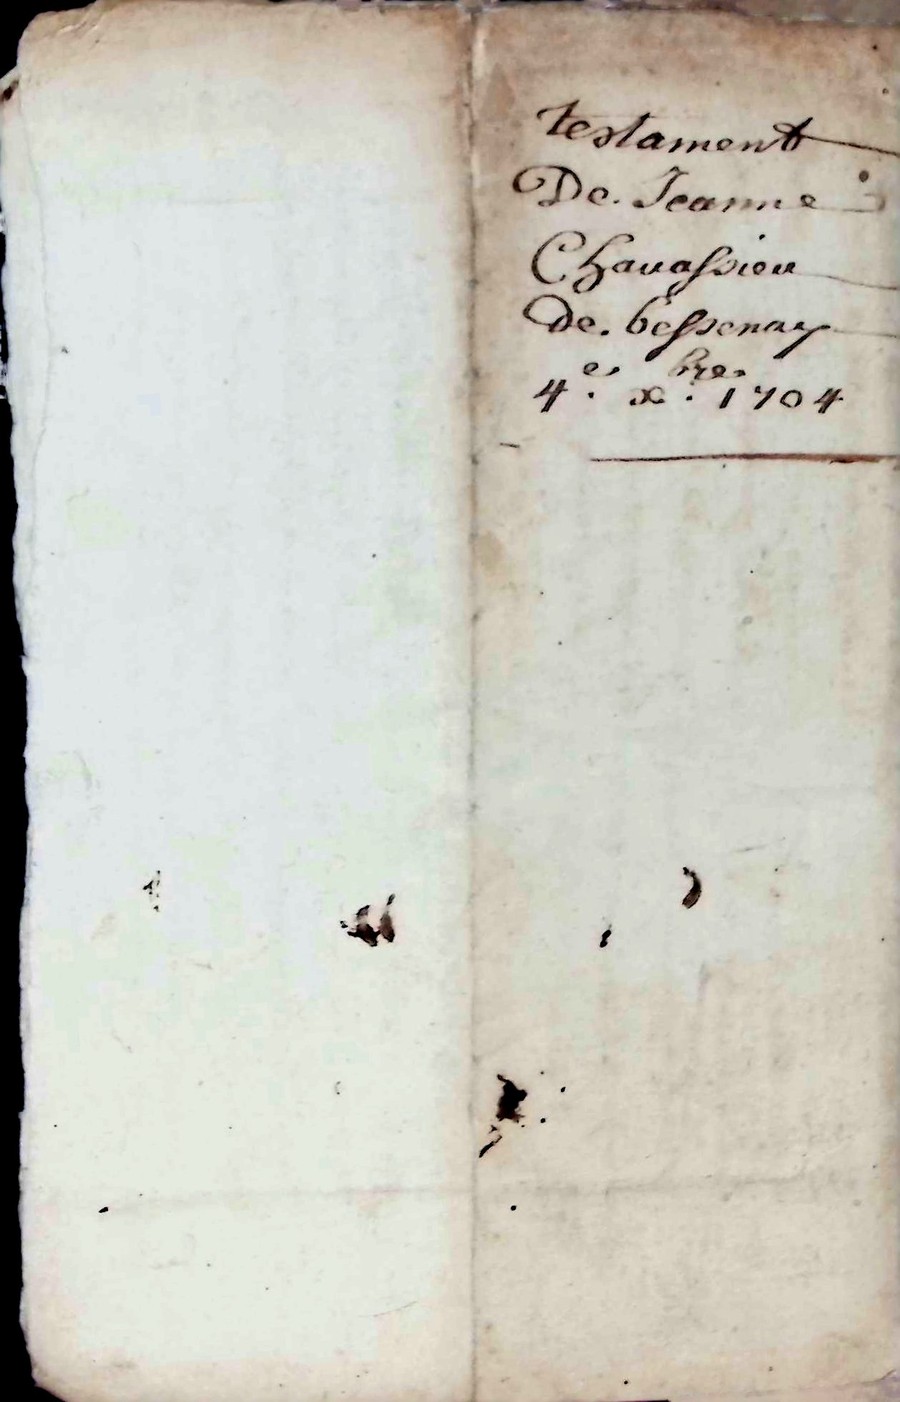 testament
De. Jeanne
Chauassieu
de. bessenay
4e. xbre. 1704